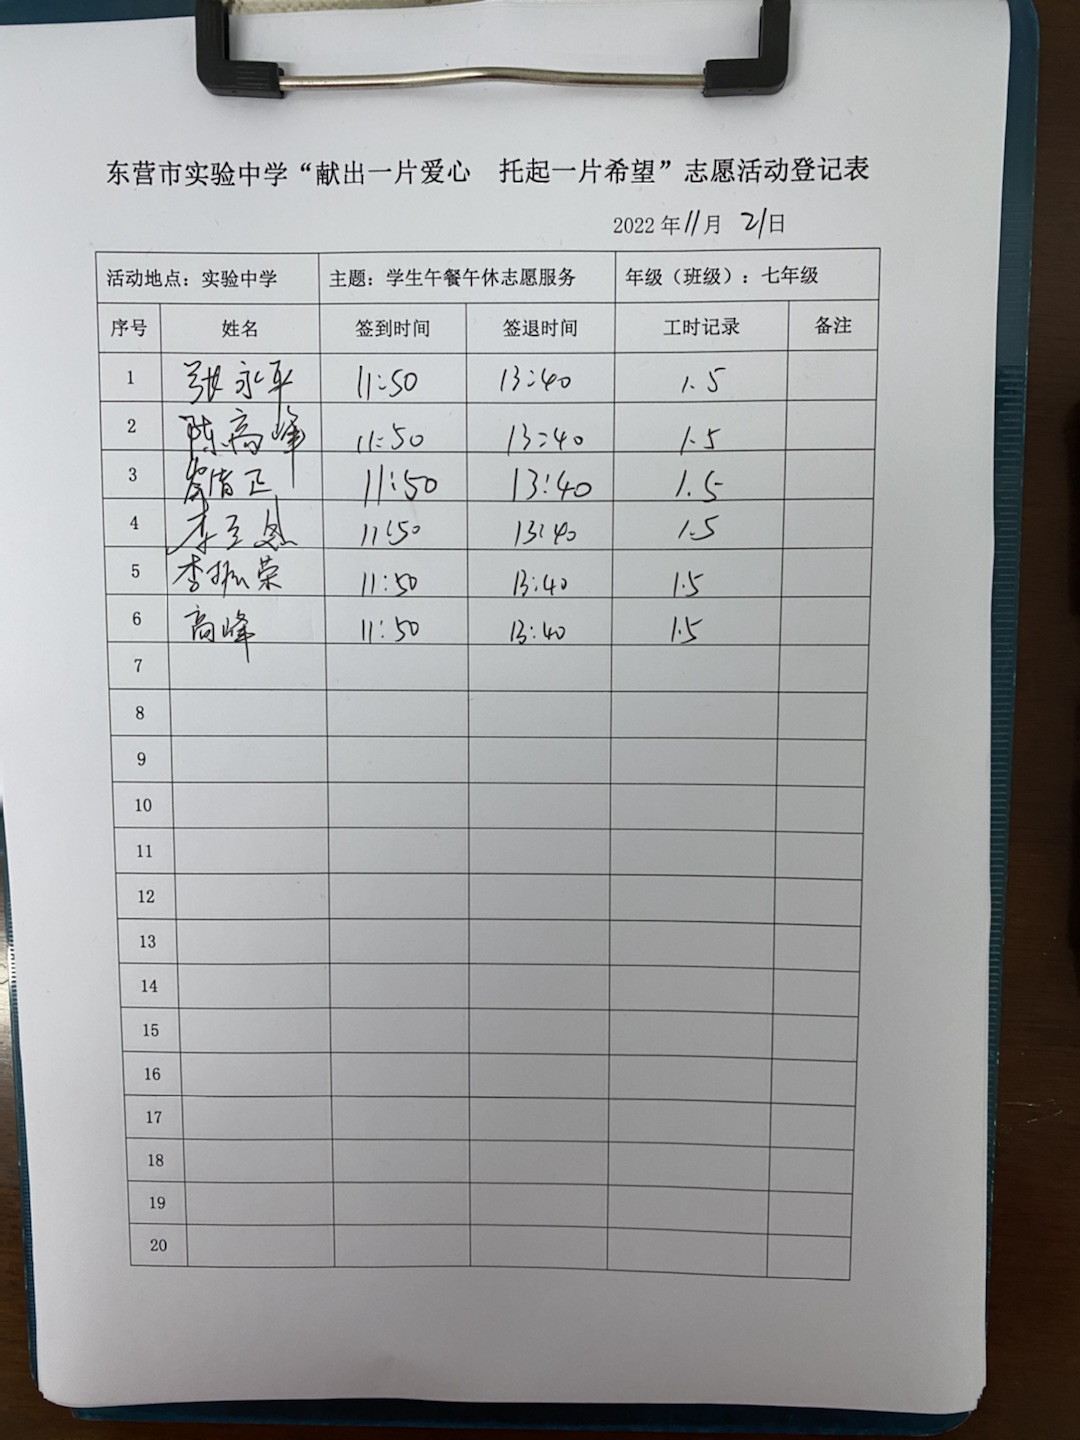 东营市实验中学“献出一片爱心 托起一片希望”志愿活动登记表
2022年11月 21日
活动地点：实验中学 主题：学生午餐午休志愿服务 年级（班级）：七年级
序号 姓名 签到时间 签退时间 工时记录 备注
1 张永平 11:50 13:40 1.5
2 陈高峰 11:50 13:40 1.5
3 11:50 13:40 1.5
4 李 11:50 13:40 1.5
5 李振荣 11:50 13:40 1.5
6 高峰 11:50 13:40 1.5
7
8
9
10
11
12
13
14
15
16
17
18
19
20